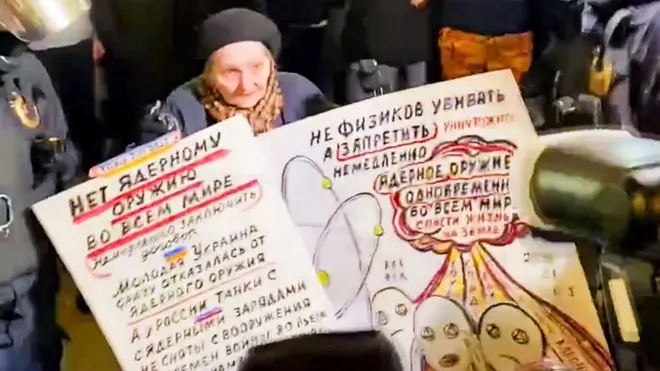 НЕТ ЯДЕРНОМУ
ОРУЖИЮ
ВО ВСЕМ МИРЕ
НЕМЕДЛЕННО ЗАКЛЮЧИТЬ
ДОГОВОР
МОЛОДАЯ УКРАИНА
СРАЗУ ОТКАЗАЛАСЬ ОТ
ЯДЕРНОГО ОРУЖИЯ
А У РОССИИ ТАНКИ С
ЯДЕРНЫМИ ЗАРЯДАМИ
НЕ СНЯТЫ С ВООРУЖЕНИЯ
ВРЕМЕН ВОЙНЫ ВО
НЕ ФИЗИКОВ УБИВАТЬ
А ЗАПРЕТИТЬ УНИЧТОЖИТЬ
НЕМЕДЛЕННО
ЯДЕРНОЕ ОРУЖИЕ
ОДНОВРЕМЕНН
ВО ВСЕМ МИР
СПАСТИ ЖИЗНЬ
НА ЗЕМЛЕ